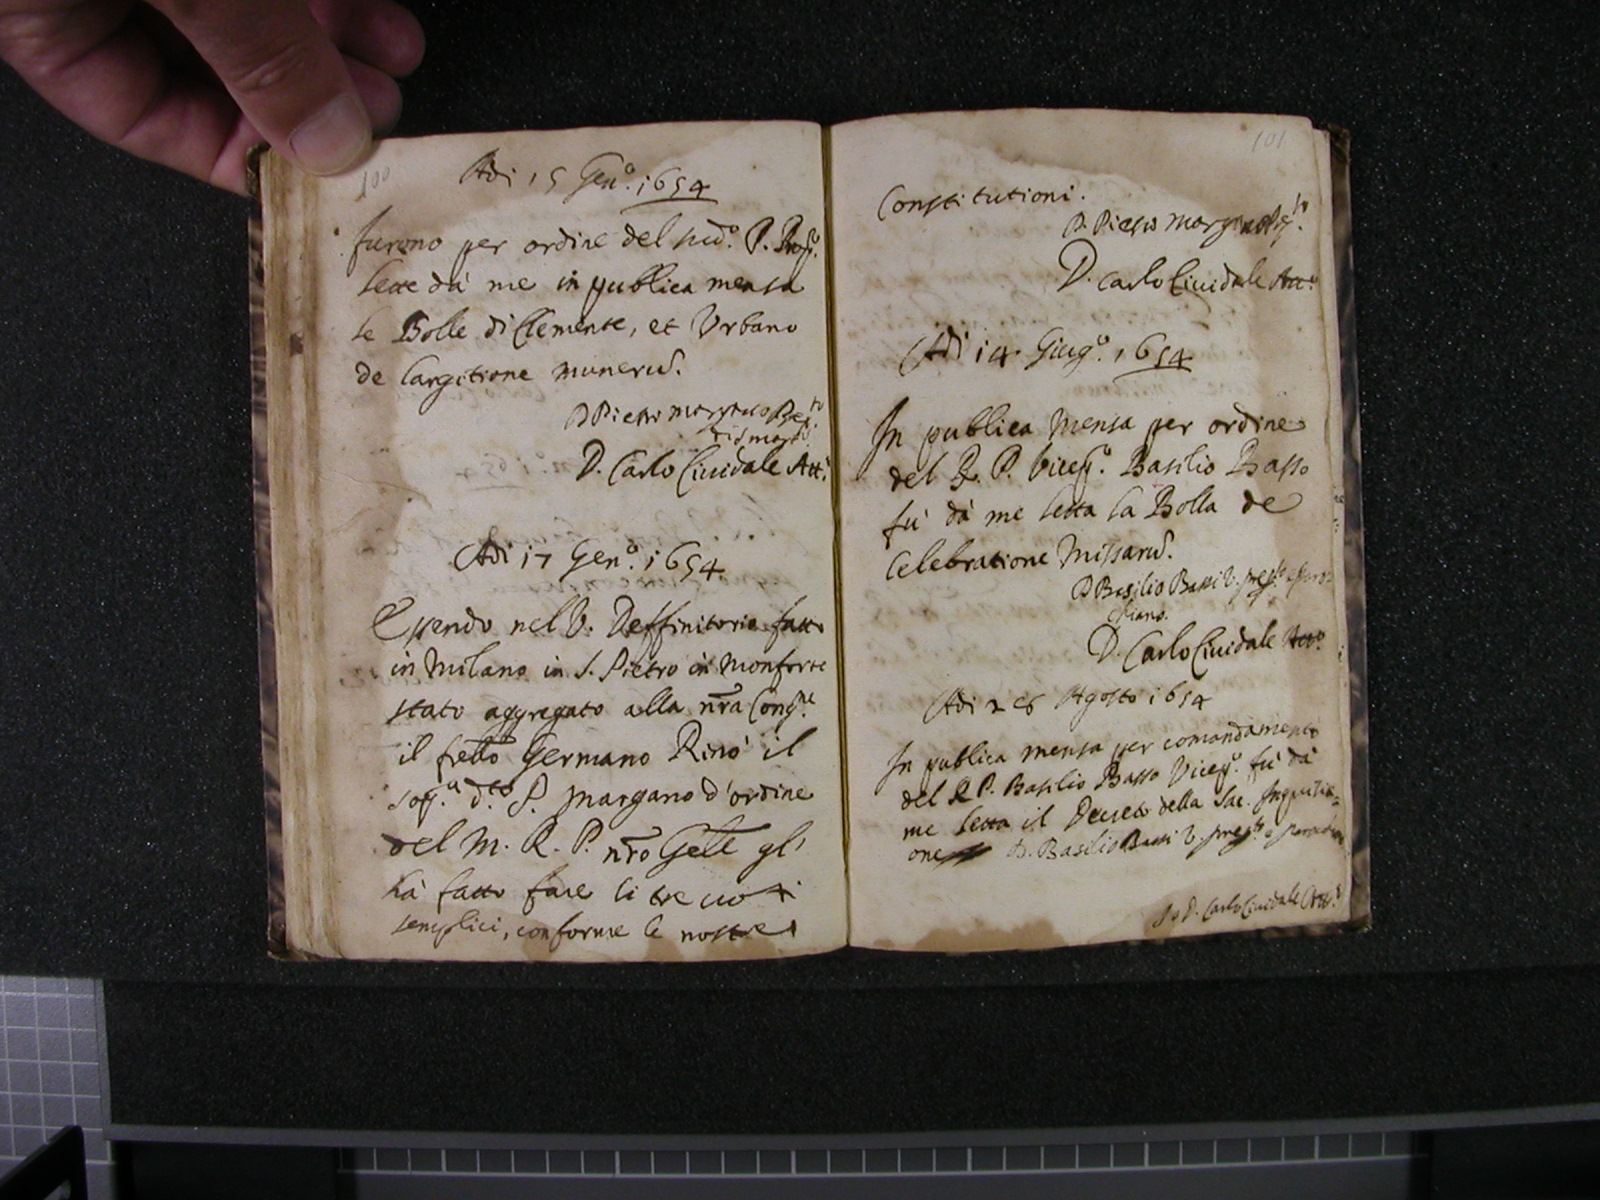 100
Adi 15 Gen.o 1654
furono per ordine del sud.o P. Prep.o
lette dà me in publica mensa
le Bolle di Clemente, et Urbano
de largitione munerū.
D. Pietro
D. Carlo Ciuidale Att.o
Adi 17 Gen.o 1654
Essendo nel V. Deffinitorio fatto
in Milano in S. Pietro in Monforte
stato aggregato alla nr̃a Cong.ne
il frello Germano Rinò il
sop.a d.to P. Margano d'ordine
del M. R. P. nr̃o Gele gli
hà fatto fare li tre uoti
semplici, conforme le nostre
101
Constitutioni.
D. Pietro
D. Carlo Ciuidale Att.o
Adi 14. Giug.o 1654
In publica Mensa per ordine
del R. P. Vicep.o Basilio Basso
fù dà me letta la Bolla de
Celebratione Missarū.
D Basilio Bassi V. prep.to e Paro
chiano.
D. Carlo Ciuidale Att.o
Adi 26 Agosto 1654
In publica mensa per comandamento
del R P. Basilio Basso Vicep.o fù dà
me letta il Decreto della Sac. Inquisiti=
one D. Basilio Bassi V. prep.to e
Io D. Carlo Ciuidale Att.o